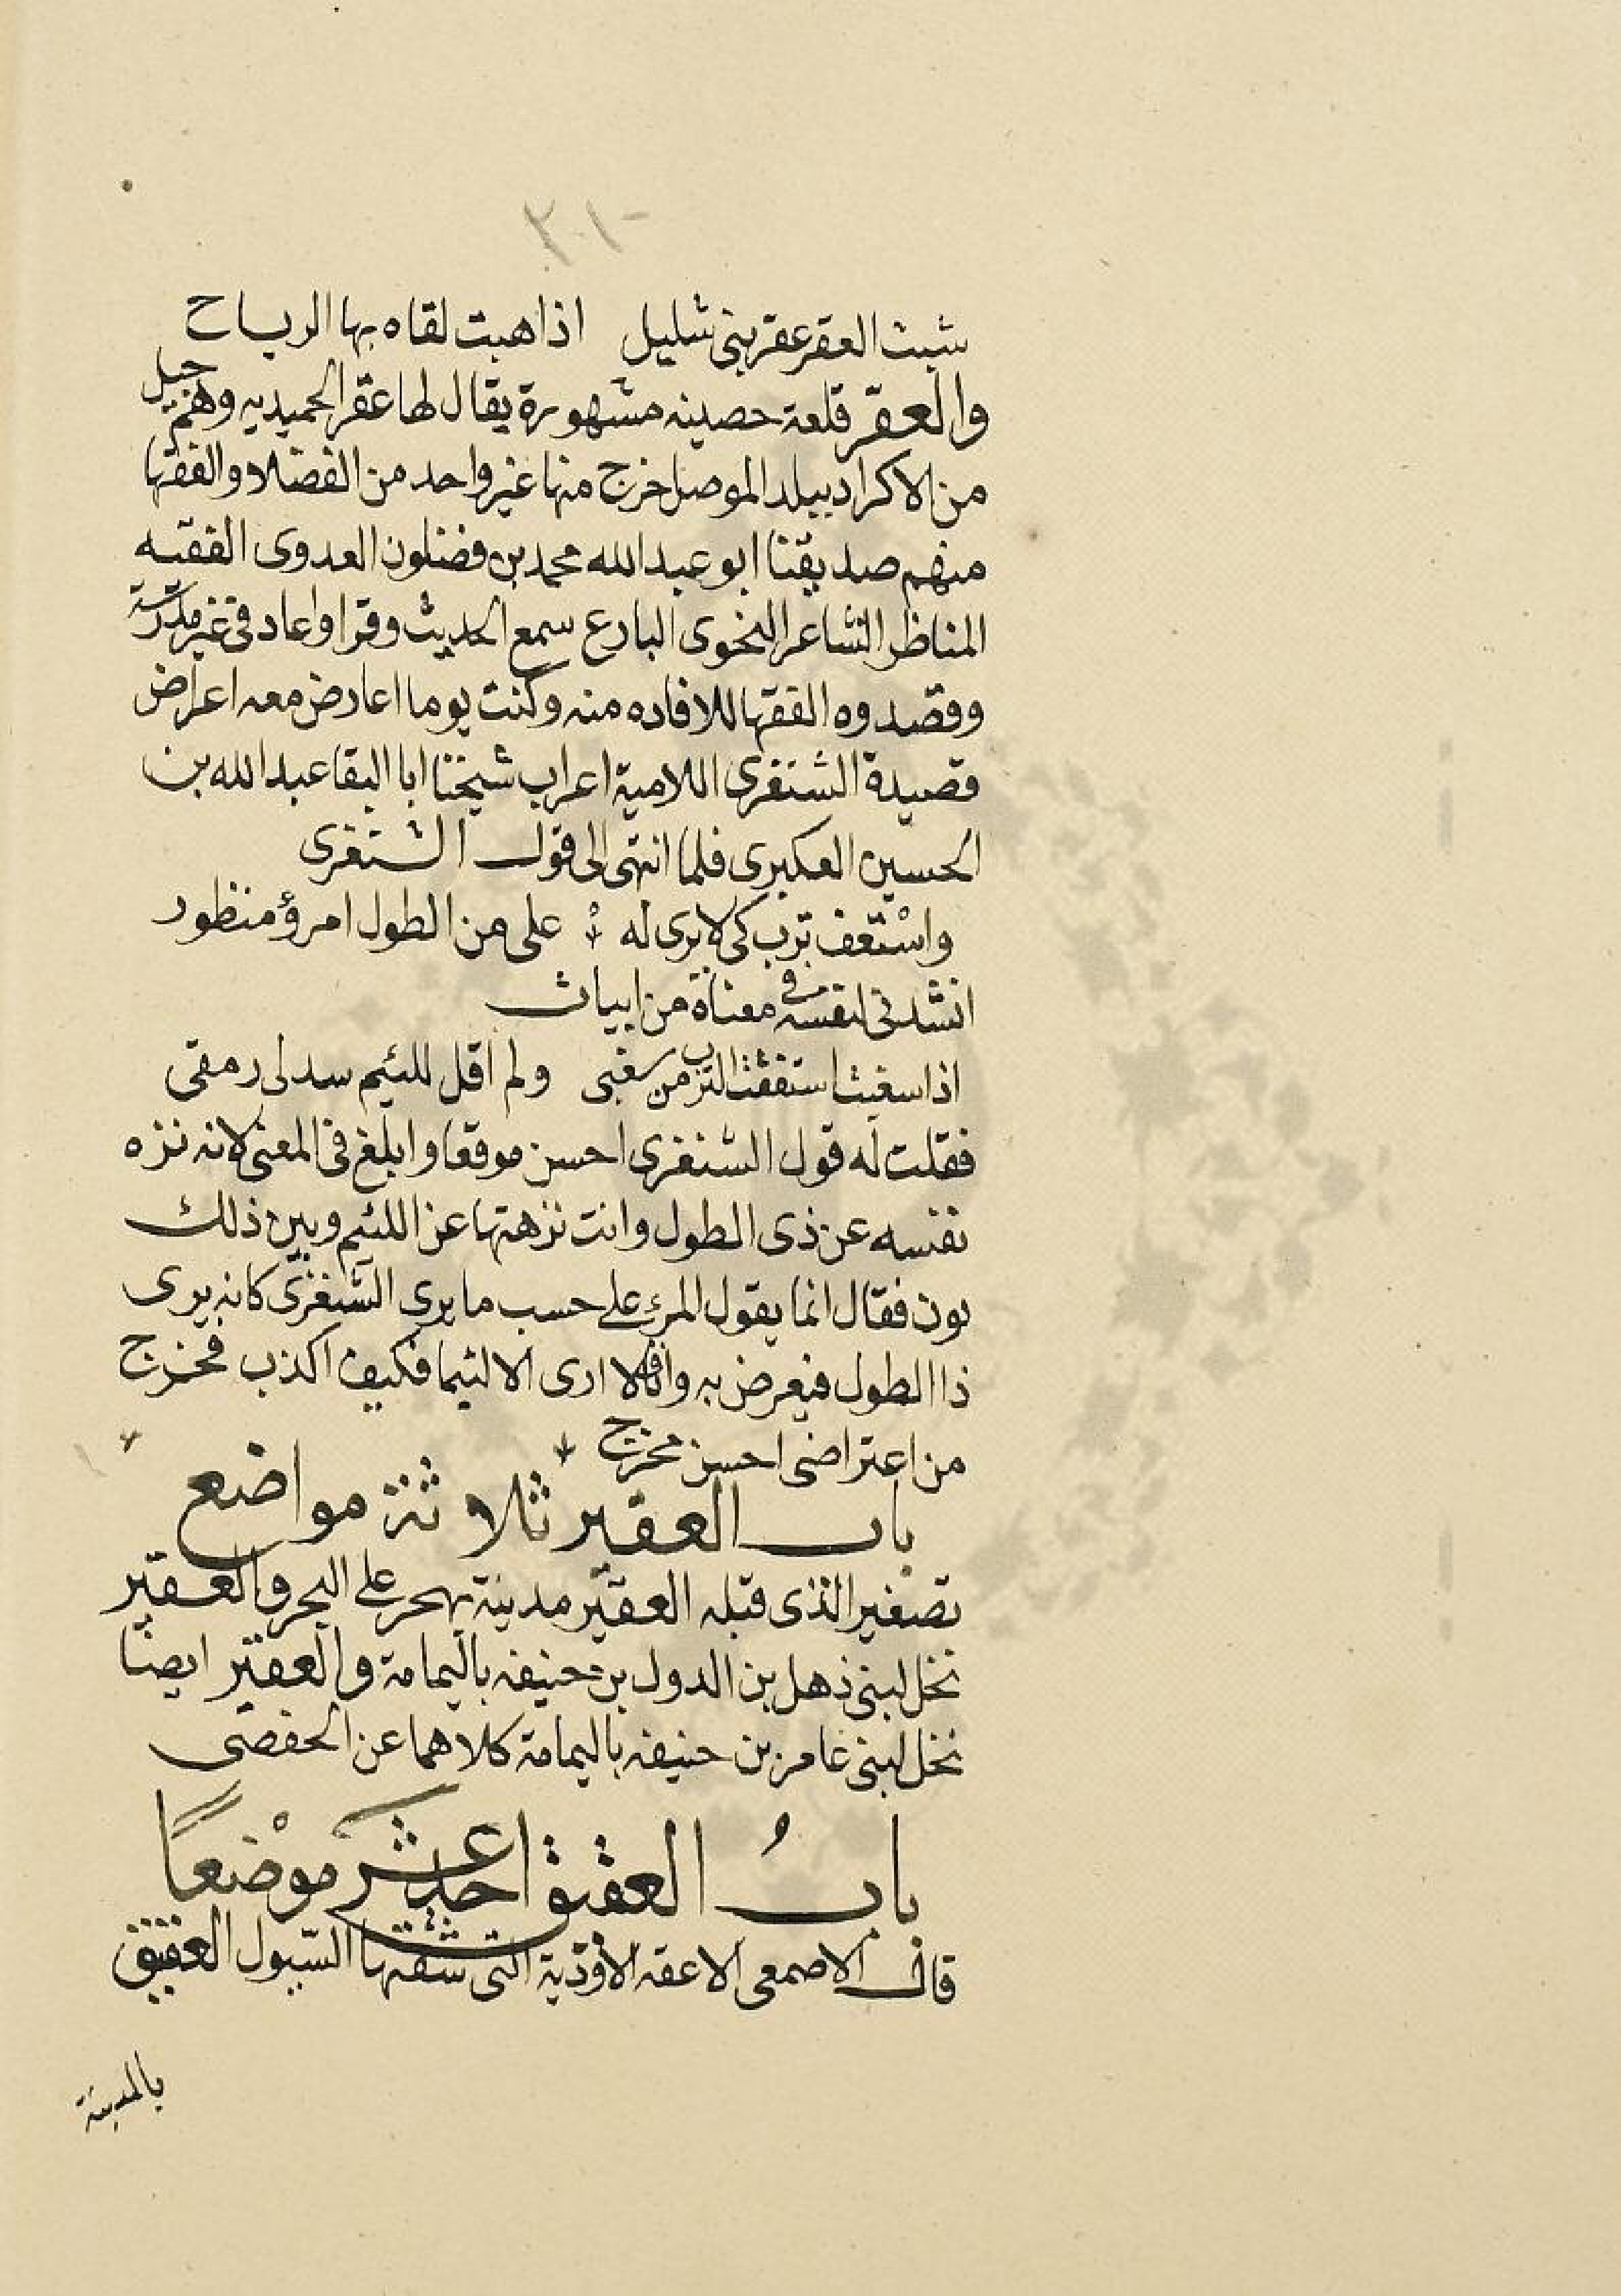 ٣٠١
شبت العقر عقر بنى شليل اذا هبت لقاه بها الرياح
والعقر قلعة حصينه مشهورة يقال لها عقر الحميديه وهم جيل
من الاكراد ببلد الموصل خرج منها غير واحد من الفضلا والفقها
منهم صديقنا ابو عبد الله محمد بن فضلون العدوى الفقيه
المناظر الشاعر النحوى البارع سمع الحديث وقرا واعاد فى غير مدرسة
وقصدوه الفقها للافاده منه وكنت يوما اعارض معه اعراض
قصيدة الشنفرى اللامية اعراب شيخنا ابا البقا عبد الله بن
الحسين العكبرى فلما انتهى الى قول الشنفرى
واستعف ترب كى لا يرى له على من الطول امرؤ منظور
انشدنى لنفسه فى معناة من ابيات
اذا سغبت استففت الترب من سغبى ولم اقل للئيم سد لى رمقى
فقلت له قول الشنفرى احسن موقعا وابلغ فى المعنى لانه نزه
نفسه عن ذى الطول وانت نزهتها عن اللئيم وبين ذلك
بون فقال انما يقول المرء على حسب ما يرى الشنفرى كانه يرى
ذا الطول فيعرض به وانا فلا ارى الا لئيما فكيف اكذب فخرج
من اعتراضى احسن مخرج
باب العقير ثلاثة مواضع
تصغير الذى قبله العقير مدينة بهجر على البحر والعقير
نخل لبنى ذهل بن الدول بن حنيفه باليمامة والعقير ايضا
نخل لبنى عامر بن حنيفه باليمامة كلاهما عن الحفصى
بابُ العقيق احد عشر موْضعاً
قال الاصمعى الاعقه الاودية التى شقتها السيول العقيق
بالمدينة